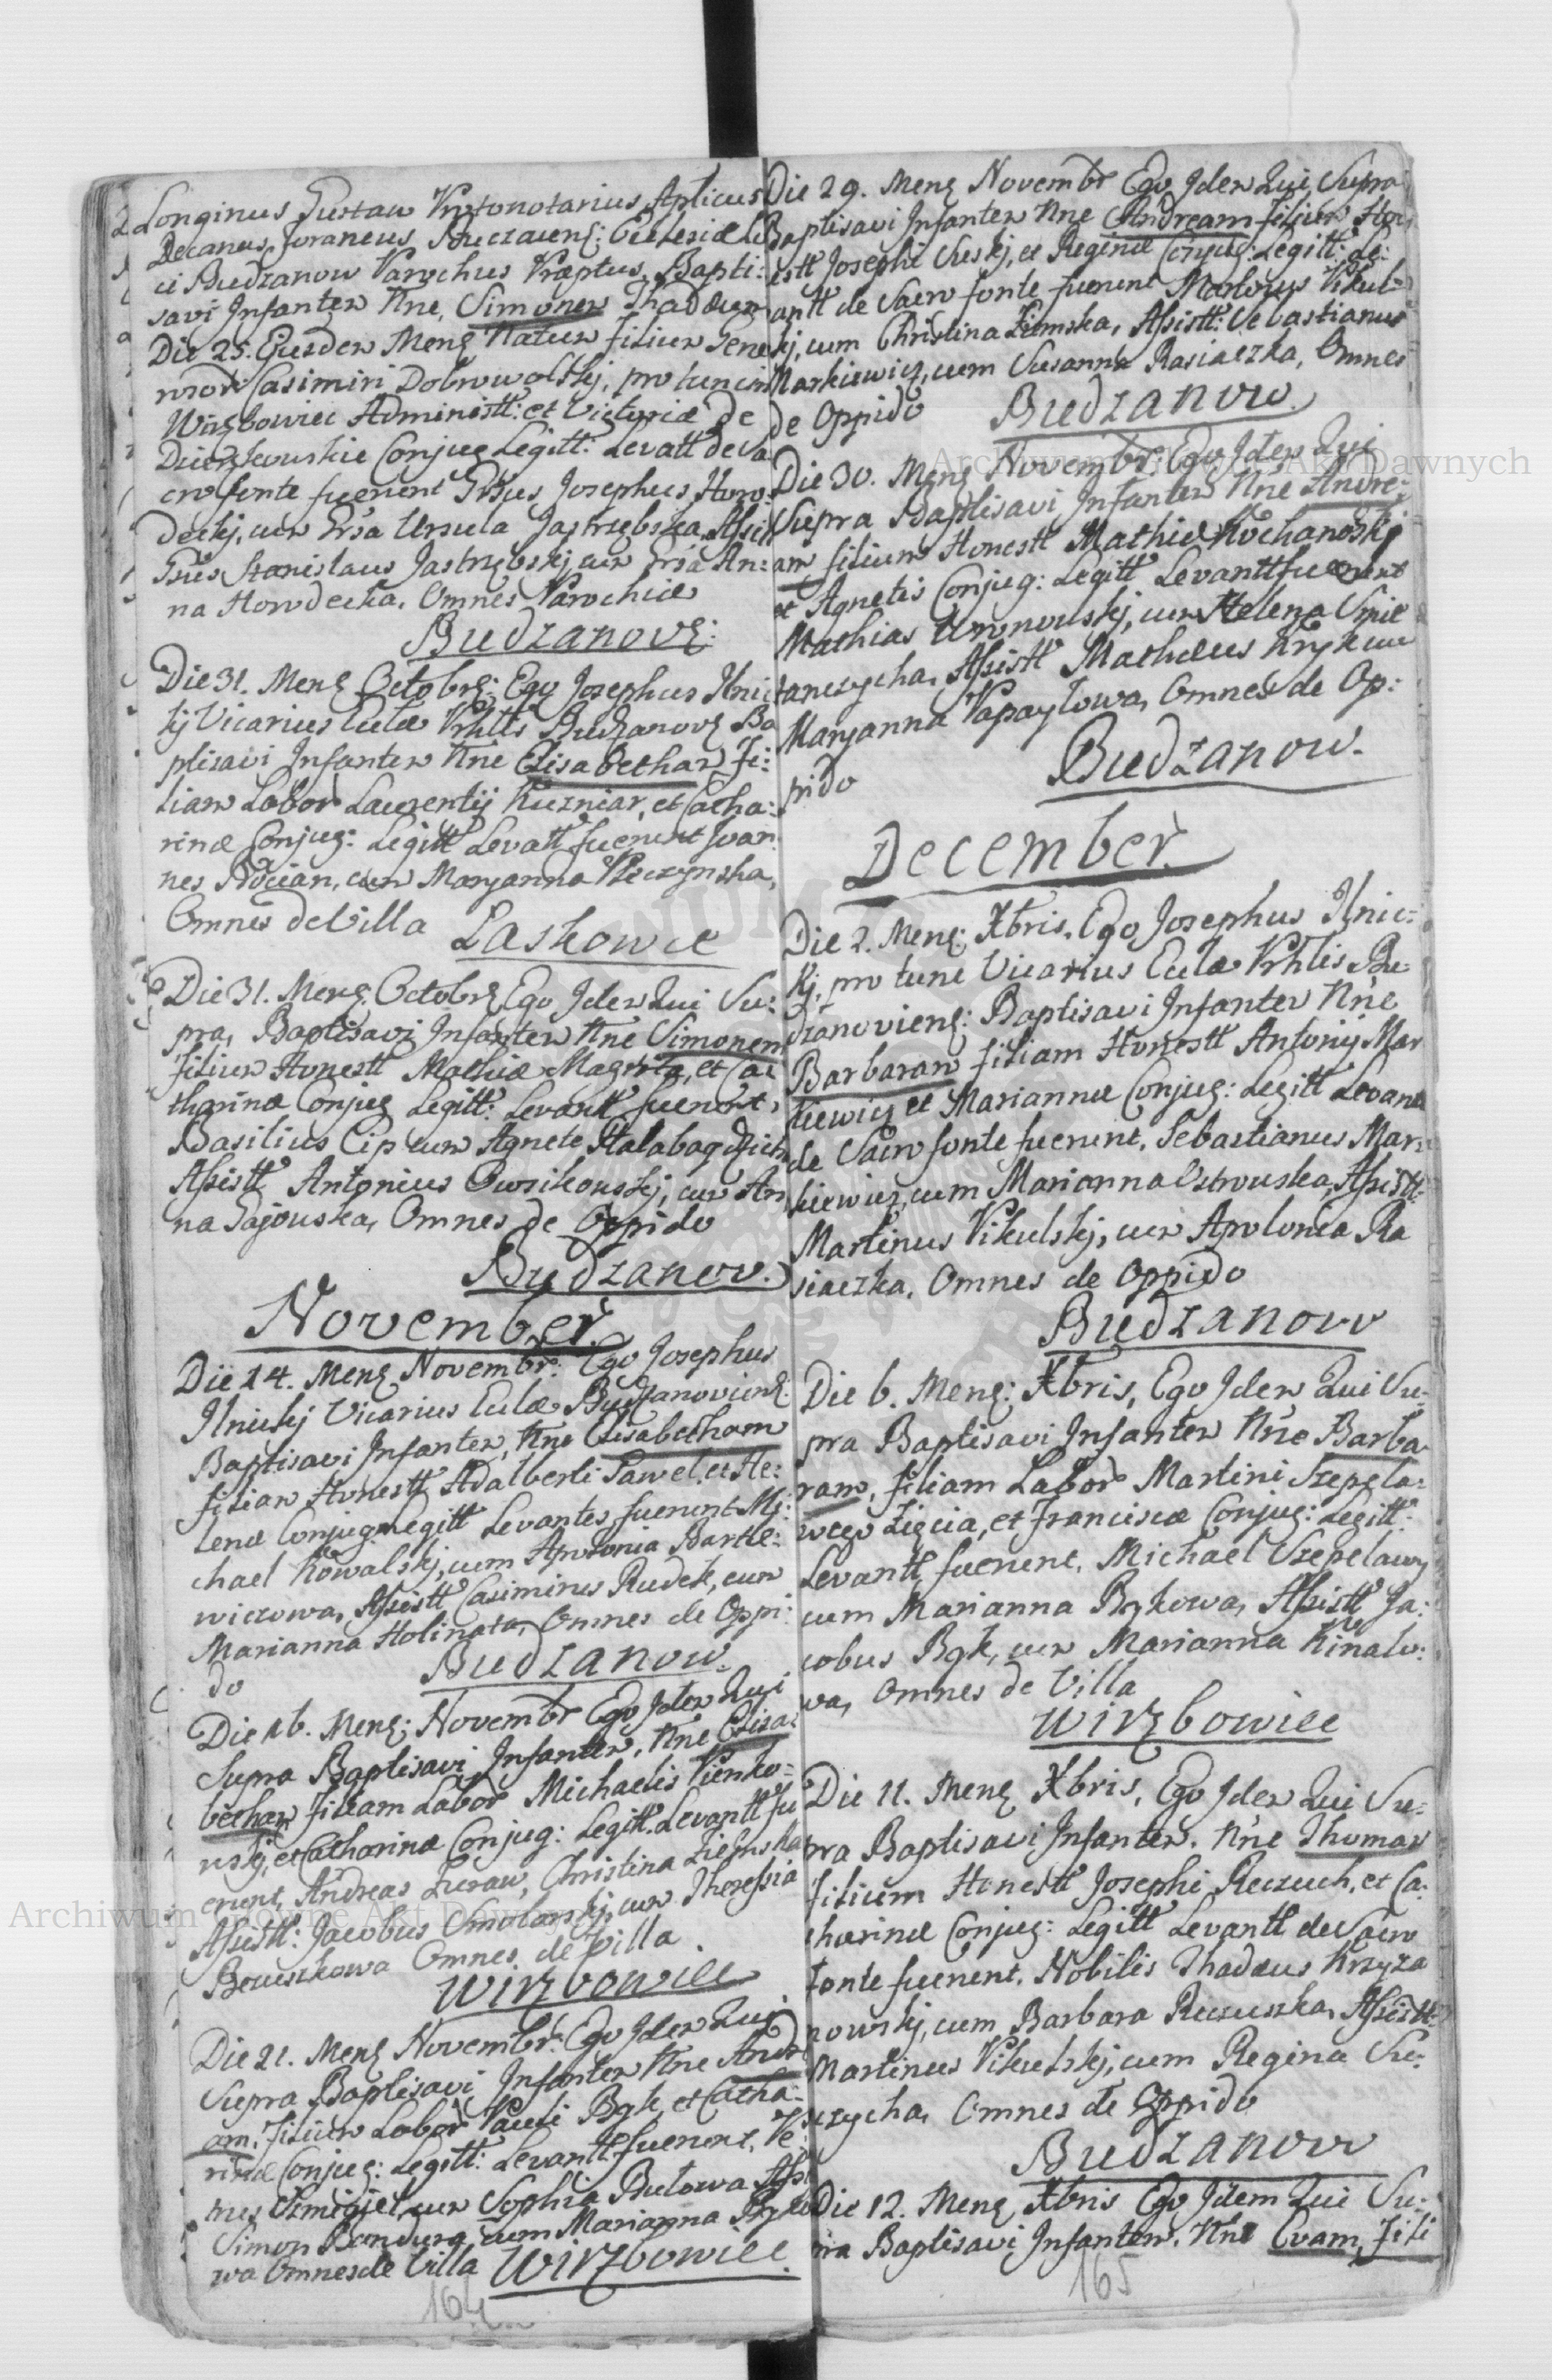 Longinus Gustaw Prtonotarius Aplicus
Decanus foraneus Buczacens: Ecclesiæ Lo
ci Budzanow Parochus Præptus, Bapti:
savi Infantem Nne, Simonem Thaddæum
Die 25. Ejusdem Mens Natum filium Gene
rosor Casimiri Dobrowolskj, pro tunc in
Wirzbowiec Administt: et Victoriæ de
Dzierzkowskie Conjug Legitt: Levatt de Sa
cro fonte fuerunt Gsus Josephus Horo
deckj, cum Grsa Ursula Jastrzębska, Assistt
Gsus Stanislaus Jastrzębskj cum Grsa An:
na Horodecka. Omnes Parochiæ
Budzanovs:
Die 31. Mens Octobrs: Ego Josephus Ilnic
kj Vicarius Eccle Prhlis Budzanovs Ba
ptisavi Infantem Nne Elisabetham Fi:
liam Labor Laurentij Kuzniar, et Catha:
rinæ Conjug: Legitt Levatt fuerunt Joan
nes Bocian, cum Maryanna Pleczynska,
Omnes de Villa
Laskowce
Die 31. Mens Octobrs Ego Idem Qui Su:
pra, Baptisavi Infantem Nne Simonem
filium Honestt Mathiæ Magreta, et Ca
tharinæ Conjug Legitt: Levantt fuerunt,
Basilius Cip cum Agnete
Assistt Antonius Owsikowskj, cum An
na Gajowska, Omnes de Oppido
Budzanow.
November
Die 14. Mens Novembr: Ego Josephus
Ilnickj Vicarius Eclæ Budzanoviens
Baptisavi Infantem, Nne Elisabetham
filiam Honestt Adalberti Pawel, et He:
lenæ Conjug Legitt Levantes fuerunt Mi:
chael Kowalskj, cum Apolonia Bartke:
wiczowa, Assistt Casimirus Rudek, cum
Marianna Holinata, Omnes de Oppi:
do
Budzanow
Die 16. Mens; Novembr Ego Idem Qui
Supra Baptisavi Infantem, Nne Elisa:
betham Filiam Labor Michaelis Pienko:
wskj, et Catharinæ Conjug: Legitt. Levantt fu
erunt, Andreas Zuraw, Christina Ziemska
Assistt: Jacobus Smolarskj, cum Theressia
Omnes de Villa
Wirzbowiec
Die 21. Mens Novembr: Ego Idem Qui
Supra Baptisavi Infantem Nne Andre
am, Filium Labor Pauli Byk, et Catha:
rinæ Conjug: Legitt: Levantt fuerunt, Pe
trus cum Sophia Butowa Assi
Simon Bandura cum Marianna Byko
wa Omnes de Villa Wirzbowiec.
164
Die 29. Mens Novembr Ego Idem Qui Supra
Baptisavi Infantem Nne Andream filium Hon
estt Josephi et Reginæ Conjug: Legitt: Le:
antt de Sacro fonte fuerunt Martinus Vikul
skj, cum Christina Ziemska, Assistt: Sebastianus
Markiewicz, cum Susanna Rasiaczka, Omnes
de Oppido
Budzanow.
Die 30. Mens Novembr: Ego Idem Qui
Supra Baptisavi Infantem Nne Andre:
am filium Honestt Mathiæ Kochanoskj
et Agnetis Conjug: Legitt Levantt fuerunt
Mathias cum Helena Smie
tanczycha, Assistt Mathæus Kryk cum
Maryanna Papaylowa, Omnes de Op:
pido
Budzanow.
December.
Die 2. Mens: Xbris, Ego Josephus Ilnic:
kj, pro tunc Vicarius Eclæ Prhlis Bu
dzanoviens: Baptisavi Infantem Nne
Barbaram filiam Honestt Antonij Mar
kiewicz et Mariannæ Conjug: Legitt Levant
de Sacro fonte fuerunt, Sebastianus Mar:
kiewicz, cum Marianna Ostrowska, Assistt:
Martinus Vikulskj, cum Apolonia Ra
siaczka, Omnes de Oppido
Budzanow
Die 6. Mens; Xbris, Ego Idem Qui Su:
pra Baptisavi Infantem Nne Barba
ram, filiam Labor Martini Szepela:
wego Zięcia, et Franciscæ Conjug: Legitt:
Levantt fuerunt, Michael Szepelawy
cum Marianna Bykowa, Assistt Ja:
cobus Byk, cum Marianna Kinalo:
wa, Omnes de Villa
Wirzbowiec
Die 11. Mens Xbris, Ego Idem Qui Su:
pra Baptisavi Infantem, Nne Thomam
filium Honestt Josephi Raczuch, et Ca:
tharinæ Conjug: Legitt Levantt de Sacro
fonte fuerunt, Nobilis Thadæus Krzyza
nowskj, cum Barbara Assistt:
Martinus Vikulskj, cum Regina
Omnes de Oppido
Budzanow
Die 12. Mens Xbris Ego Idem Qui Su:
pra Baptisavi Infantem, Nne Evam, Fili
165
Archiwum Główne Akt Dawnych
Archiwum Główne Akt Dawnych